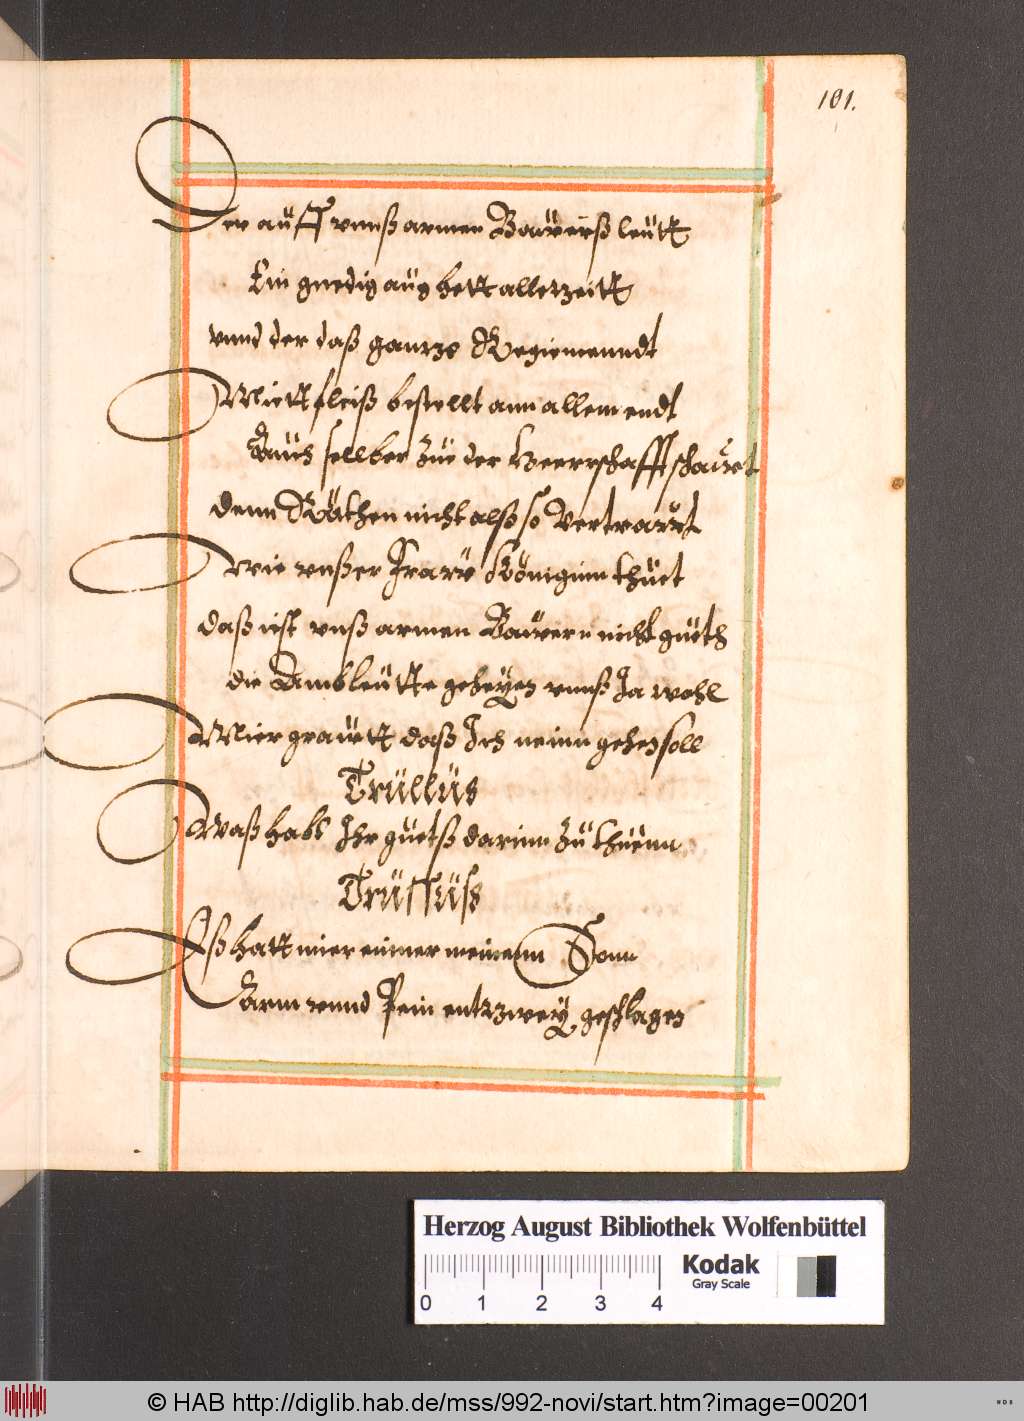 101.
Der auff vnnß armen Bauerßleütt
Ein gnedig aug hett allerzeitt
vnnd der daß gantze Regiemenndt
Miett fleiß bestellt ann allem endt
Auch sellber züe der Heerrschafft schauet
denn Räthen nicht alß so vertrauet
wie vnßer Frauw Königinn thüet
daß ist vnß armen Bauern nicht gueth
die Ambleütte geheyen vnnß Ja wohl
Mier grauett daß Ich neinn gehen soll
Trüllüs
Waß habt Ihr guetß darinn zü thuenn
Trüssüß
Eß hatt mier einner meinenn Sonn
Arm vnnd Pein entzwey geschlagen
Herzog August Bibliothek Wolfenbüttel
Kodak
Gray Scale
0 1 2 3 4
© HAB http://diglib.hab.de/mss/992-novi/start.htm?image=00201